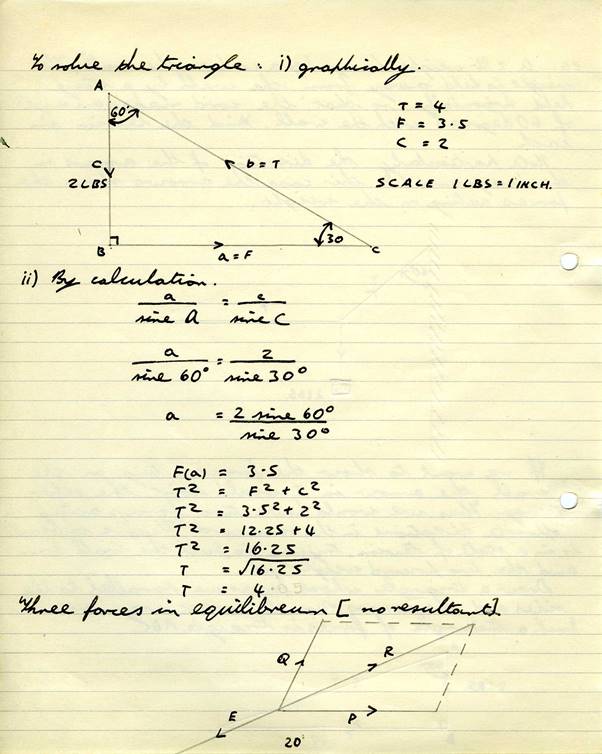 To solve the triangle : i) graphically.
A
60°
T = 4
F = 3.5
C = 2
C
2 LBS
b = T
SCALE 1 LBS = 1 INCH.
B
a = F
30
C
ii) By calculation.
a/sine A = c/sine C
a/sine 60° = 2/sine 30°
a = 2 sine 60°/sine 30°
F(a) = 3.5
T² = F² + C²
T² = 3.5² + 2²
T² = 12.25 + 4
T² = 16.25
T = √16.25
T = 4.
Three forces in equilibreum [ no resultant].
Q
R
E
P
20